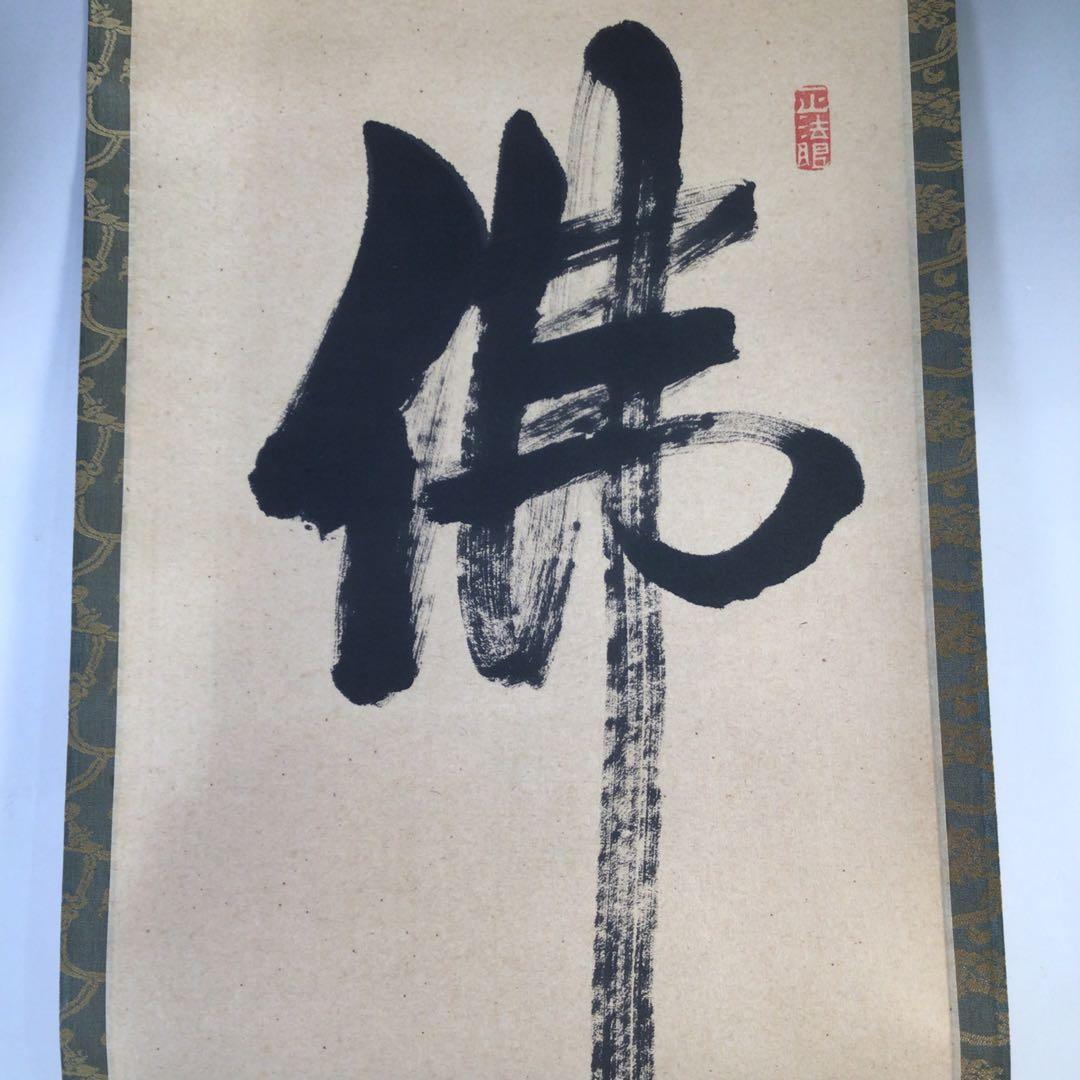 佛
正法眼